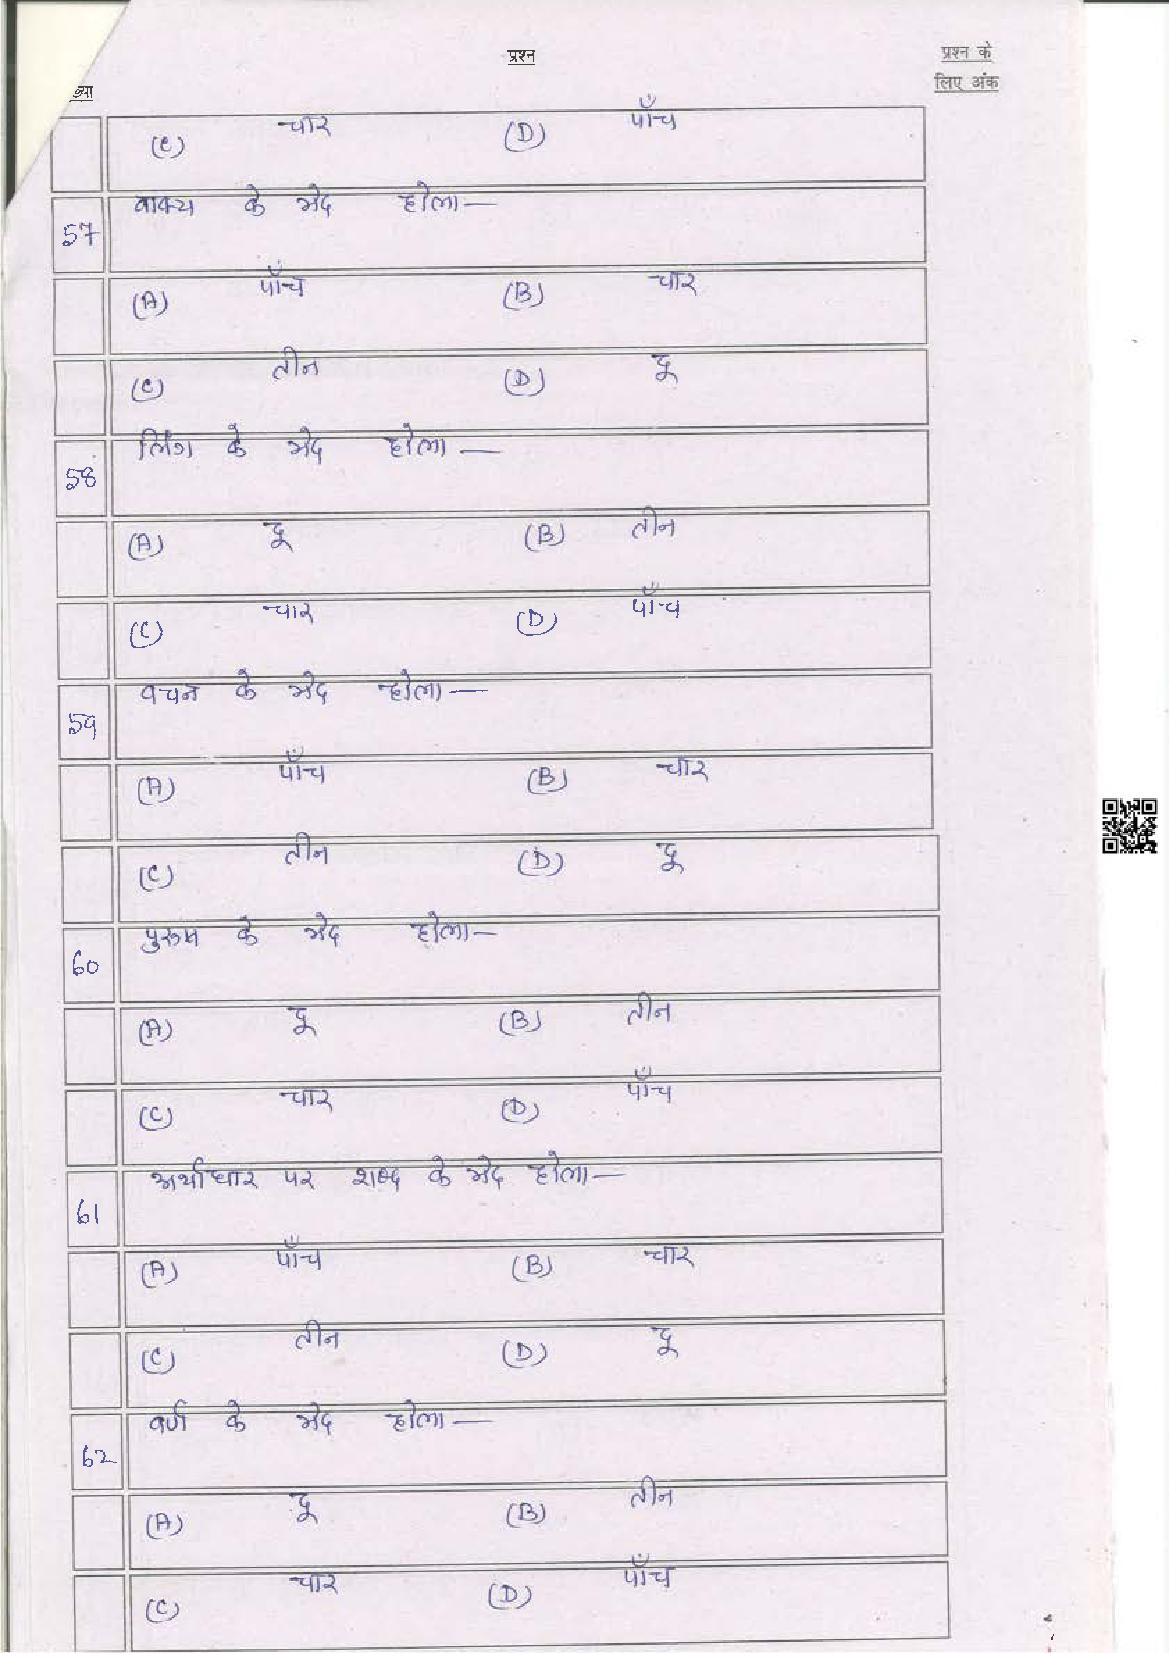 प्रश्न
प्रश्न के
लिए अंक
ख्या
(C) चार (D) पाँच
57 वाक्य के भेद होला—
(A) पाँच (B) चार
(C) तीन (D) दू
58 लिंग के भेद होला —
(A) दू (B) तीन
(C) चार (D) पाँच
59 वचन के भेद होला —
(A) पाँच (B) चार
(C) तीन (D) दू
60 पुरुष के भेद होला—
(A) दू (B) तीन
(C) चार (D) पाँच
61 अर्थाधार पर शब्द के भेद होला—
(A) पाँच (B) चार
(C) तीन (D) दू
62 वर्ण के भेद होला —
(A) दू (B) तीन
(C) चार (D) पाँच